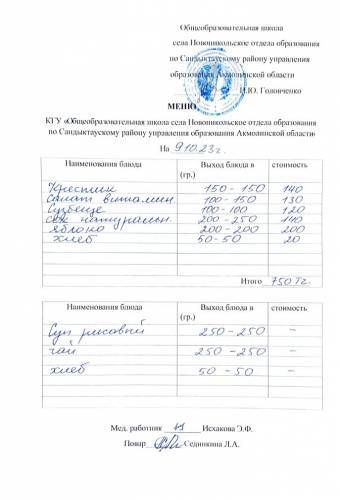 Общеобразовательная школа
села Новоникольское отдела образования
по Сандыктаускому району управления
образования Акмолинской области
Н.Ю. Головченко
МЕНЮ
КГУ «Общеобразовательная школа села Новоникольское отдела образования
по Сандыктаускому району управления образования Акмолинской области»
На 9.10.23 г.
Наименования блюда Выход блюда в (гр.) стоимость
150 - 150 140
Салат витамин. 100 - 150 130
100 - 100 120
Сок натуральн. 200 - 250 140
яблоко 200 - 200 200
хлеб 50 - 50 20
Итого 750 Тг.
Наименования блюда Выход блюда в (гр.) стоимость
Суп рисовый 250 - 250 -
чай 250 - 250 -
хлеб 50 - 50 -
Мед. работник Исхакова Э.Ф.
Повар Сединкина Л.А.